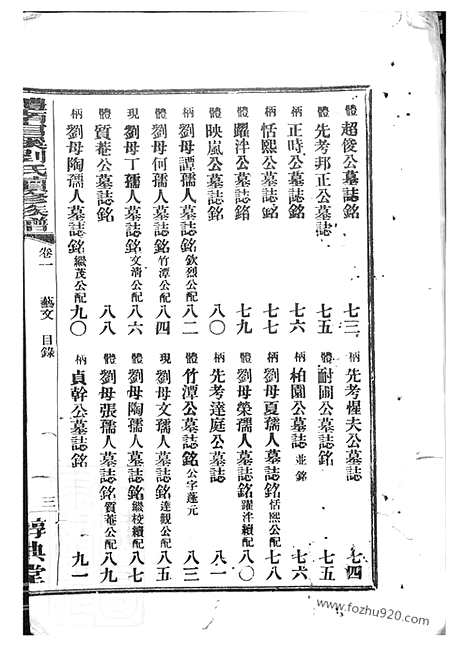 體 超俊公墓誌銘 七三
柄 先考惺夫公墓誌 七四
體 先考邦正公墓誌 七五
體 耐圃公墓誌銘 七五
柄 正時公墓誌銘 七六
柄 柏園公墓誌 並銘 七六
柄 恬熙公墓誌銘 七七
柄 劉母夏孺人墓誌銘 恬熙公配 七八
體 躍泮公墓誌銘 七九
體 劉母榮孺人墓誌銘 躍泮續配 八〇
體 映嵐公墓誌銘 八〇
柄 先考達庭公墓誌 八一
柄 劉母譚孺人墓誌銘 欽烈公配 八二
體 竹潭公墓誌銘 公字蓬元 八三
體 劉母何孺人墓誌銘 竹潭公配 八四
現 劉母文孺人墓誌銘 達觀公配 八五
現 劉母丁孺人墓誌銘 文清公配 八六
體 劉母陶孺人墓誌銘 繼校續配 八七
體 質菴公墓誌銘 八八
體 劉母張孺人墓誌銘 質菴公配 八九
柄 劉母陶孺人墓誌銘 繼茂公配 九〇
柄 貞幹公墓誌銘 九一
劉氏續修族譜 卷一 藝文 目錄
www.fozhu920.com